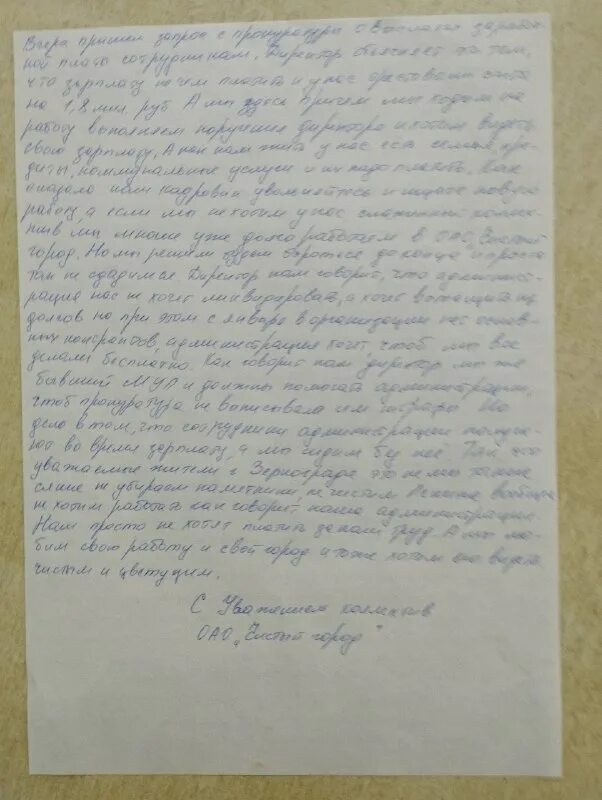 Вчера пришел запрос с прокуратуры о выплатах заработ-
ной платы сотрудникам. Директор объясняет это тем,
что зарплату нечем платить и у нас арестованы счета
на 1,8 мил. руб. А мы здесь причем мы ходим на
работу выполняем поручения директора и хотим видеть
свою зарплату, А как нам жить у нас есть семьи, кре-
диты, коммунальные услуги и их надо платить. Как
сказала нам кадровик увольняйтесь и ищите новую
работу, а если мы не хотим у нас слаженный коллек-
тив мы многие уже долго работаем в ОАО "Чистый
город". Но мы решили будем бороться до конца и просто
так не сдадимся. Директор нам говорит, что админист-
рация нас не хочет ликвидировать, а хочет вытащить из
долгов но при этом с января в организации нет основ-
ных контрактов, администрация хочет чтоб мы все
делали бесплатно. Как говорит нам директор мы же
бывший МУП и должны помогать администрации,
чтоб прокуратура не выписывала им штрафы. Но
дело в том, что сотрудники администрации получа-
ют во время зарплату, а мы сидим без неё. Так что
уважаемые жители г. Зернограда это не мы такие
не убираем памятники, не чистим Ленина вообще
не хотим работать как говорит наша администрация.
Нам просто не хотят платить за наш труд. А мы лю-
бим свою работу и свой город и тоже хотим его видеть
чистым и цветущим.
С Уважением коллектив
ОАО "Чистый город"